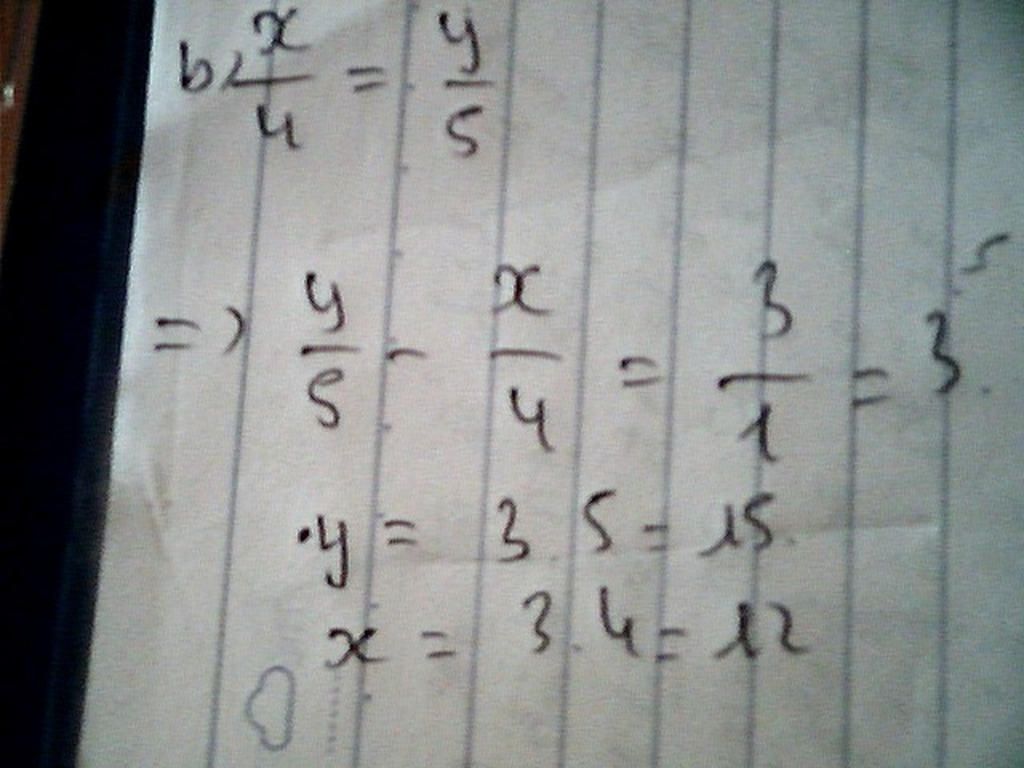 b, x/4 = y/5
=> y/5 - x/4 = 3/1 = 3.
. y = 3.5 = 15.
x = 3.4 = 12